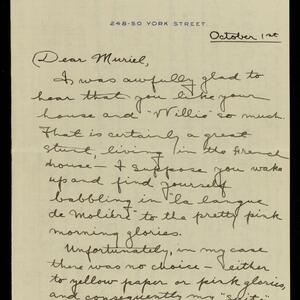 248-50 YORK STREET
October 1st
Dear Muriel,
I was awfully glad to
hear that you like your
house and "Willie" so much.
That is certainly a great
stunt, living in the French
house — I suppose you wake
up and find yourself
babbling in "la langue
de Molière" to the pretty pink
morning glories.
Unfortunately, in my case
there was no choice — either
to yellow paper or pink glories,
and consequently my "suite"